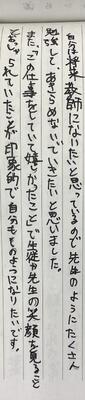 自分も将来教師になりたいと思っているので先生のようにたくさん
勉強して、あきらめないでいきたいと思いました。
また、「この仕事をしていて嬉しかったこと」で生徒や先生の笑顔を見ること
とおっしゃられていたことが印象的で自分もそのようになりたいです。